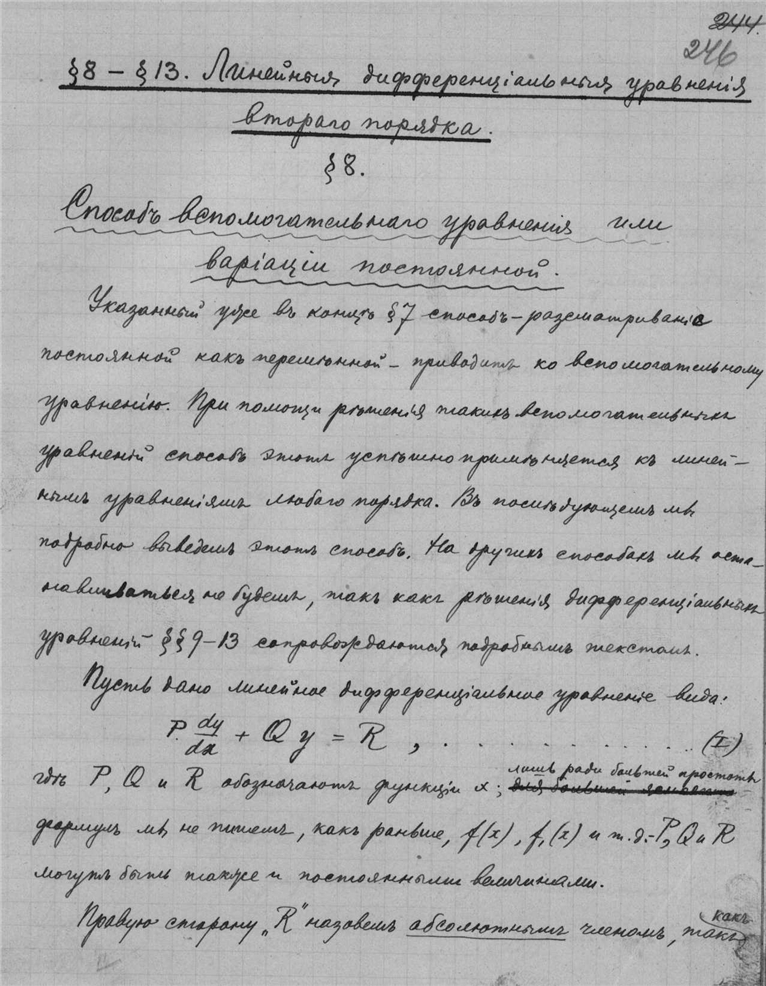 244.
246
§8 – §13. Линейныя дифференціальныя уравненія
втораго порядка.
§8.
Способъ вспомогательнаго уравненія или
варіаціи постоянной.
Указанный уже въ концѣ §7 способъ – разсматриваніе
постоянной какъ перемѣнной – приводитъ ко вспомогательному
уравненію. При помощи рѣшенія такихъ вспомогательныхъ
уравненій способъ этотъ успѣшно примѣняется къ линей-
нымъ уравненіямъ любаго порядка. Въ послѣдующемъ мы
подробно выведемъ этотъ способъ. На другихъ способахъ мы оста-
навливаться не будемъ, такъ какъ рѣшенія дифференціальныхъ
уравненій §§9–13 сопровождаются подробнымъ текстомъ.
Пусть дано линейное дифференціальное уравненіе вида:
P dy/dx + Q y = R , . . . . . . . . . . . . . . (I)
гдѣ P, Q и R обозначаютъ функціи x; лишь ради большей простоты
формулъ мы не пишемъ, какъ раньше, f(x), f₁(x) и т.д.– P, Q и R
могутъ быть также и постоянными величинами.
Правую сторону „R" назовемъ абсолютнымъ членомъ, такъ какъ